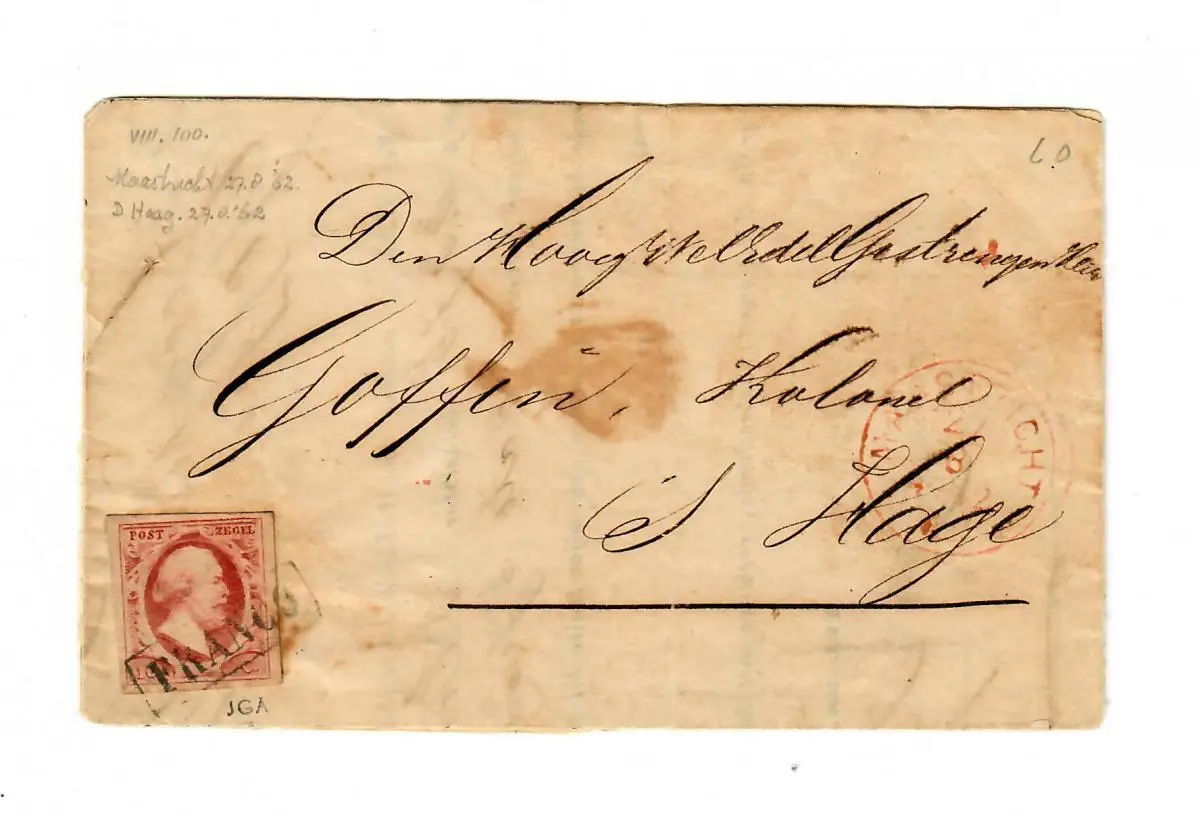 VIII. 100.
60
Maastricht 27.8 '62.
D Haag. 27.8.'62
Den Hoog Wel Edel Gestrengen Heer
Goffin, Kolonel
's Hage
MAASTRICHT
POST ZEGEL
FRANCO
JGA